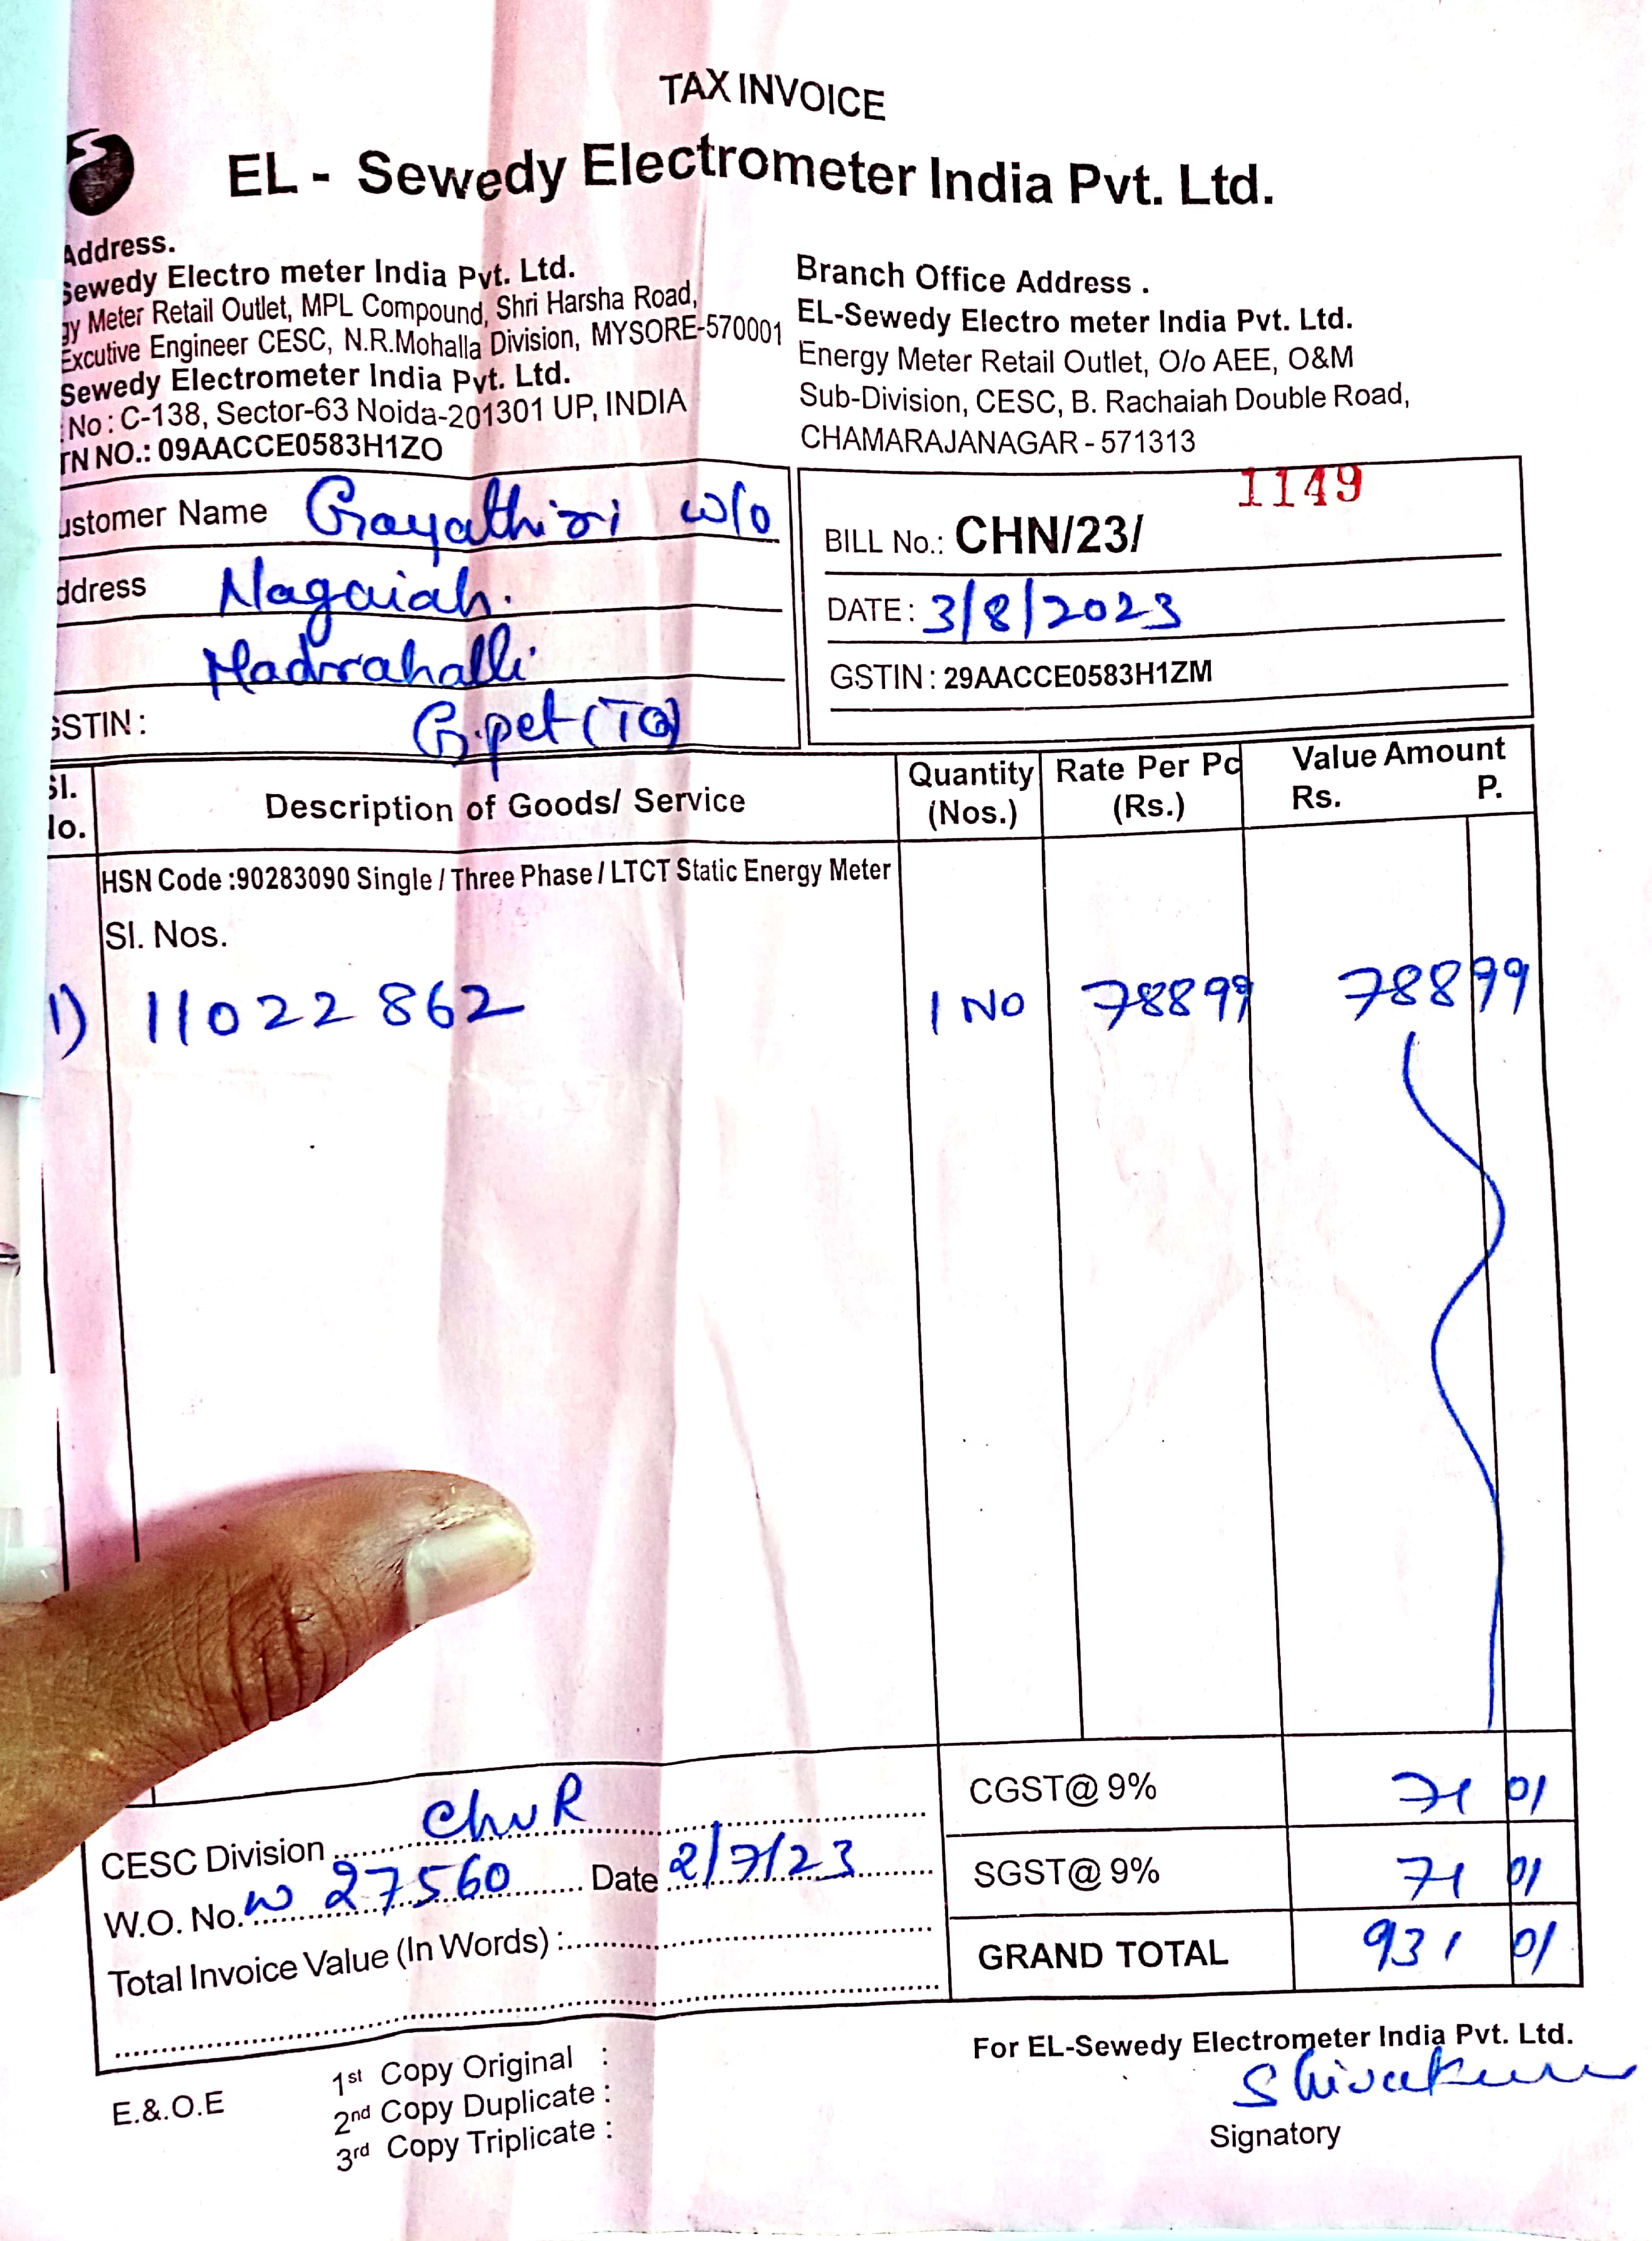 TAX INVOICE
EL - Sewedy Electrometer India Pvt. Ltd.
Address.
Sewedy Electro meter India Pvt. Ltd.
gy Meter Retail Outlet, MPL Compound, Shri Harsha Road,
Excutive Engineer CESC, N.R.Mohalla Division, MYSORE-570001
Sewedy Electrometer India Pvt. Ltd.
No : C-138, Sector-63 Noida-201301 UP, INDIA
TN NO.: 09AACCE0583H1ZO
Branch Office Address .
EL-Sewedy Electro meter India Pvt. Ltd.
Energy Meter Retail Outlet, O/o AEE, O&M
Sub-Division, CESC, B. Rachaiah Double Road,
CHAMARAJANAGAR - 571313
ustomer Name Gayathiri w/o
ddress Nagaiah.
Madrahalli
GSTIN : G.pet (TQ)
1149
BILL No.: CHN/23/
DATE : 3/8/2023
GSTIN : 29AACCE0583H1ZM
Sl. No. Description of Goods/ Service Quantity (Nos.) Rate Per Pc (Rs.) Value Amount Rs. P.
HSN Code :90283090 Single / Three Phase / LTCT Static Energy Meter
Sl. Nos.
1) 11022862 1 NO 78899 788 99
CGST@ 9% 71 01
SGST@ 9% 71 01
GRAND TOTAL 931 01
CESC Division ChnR
W.O. No. W 27560 Date 2/7/23
Total Invoice Value (In Words) :
For EL-Sewedy Electrometer India Pvt. Ltd.
Shivakum
Signatory
E.&.O.E
1st Copy Original :
2nd Copy Duplicate :
3rd Copy Triplicate :